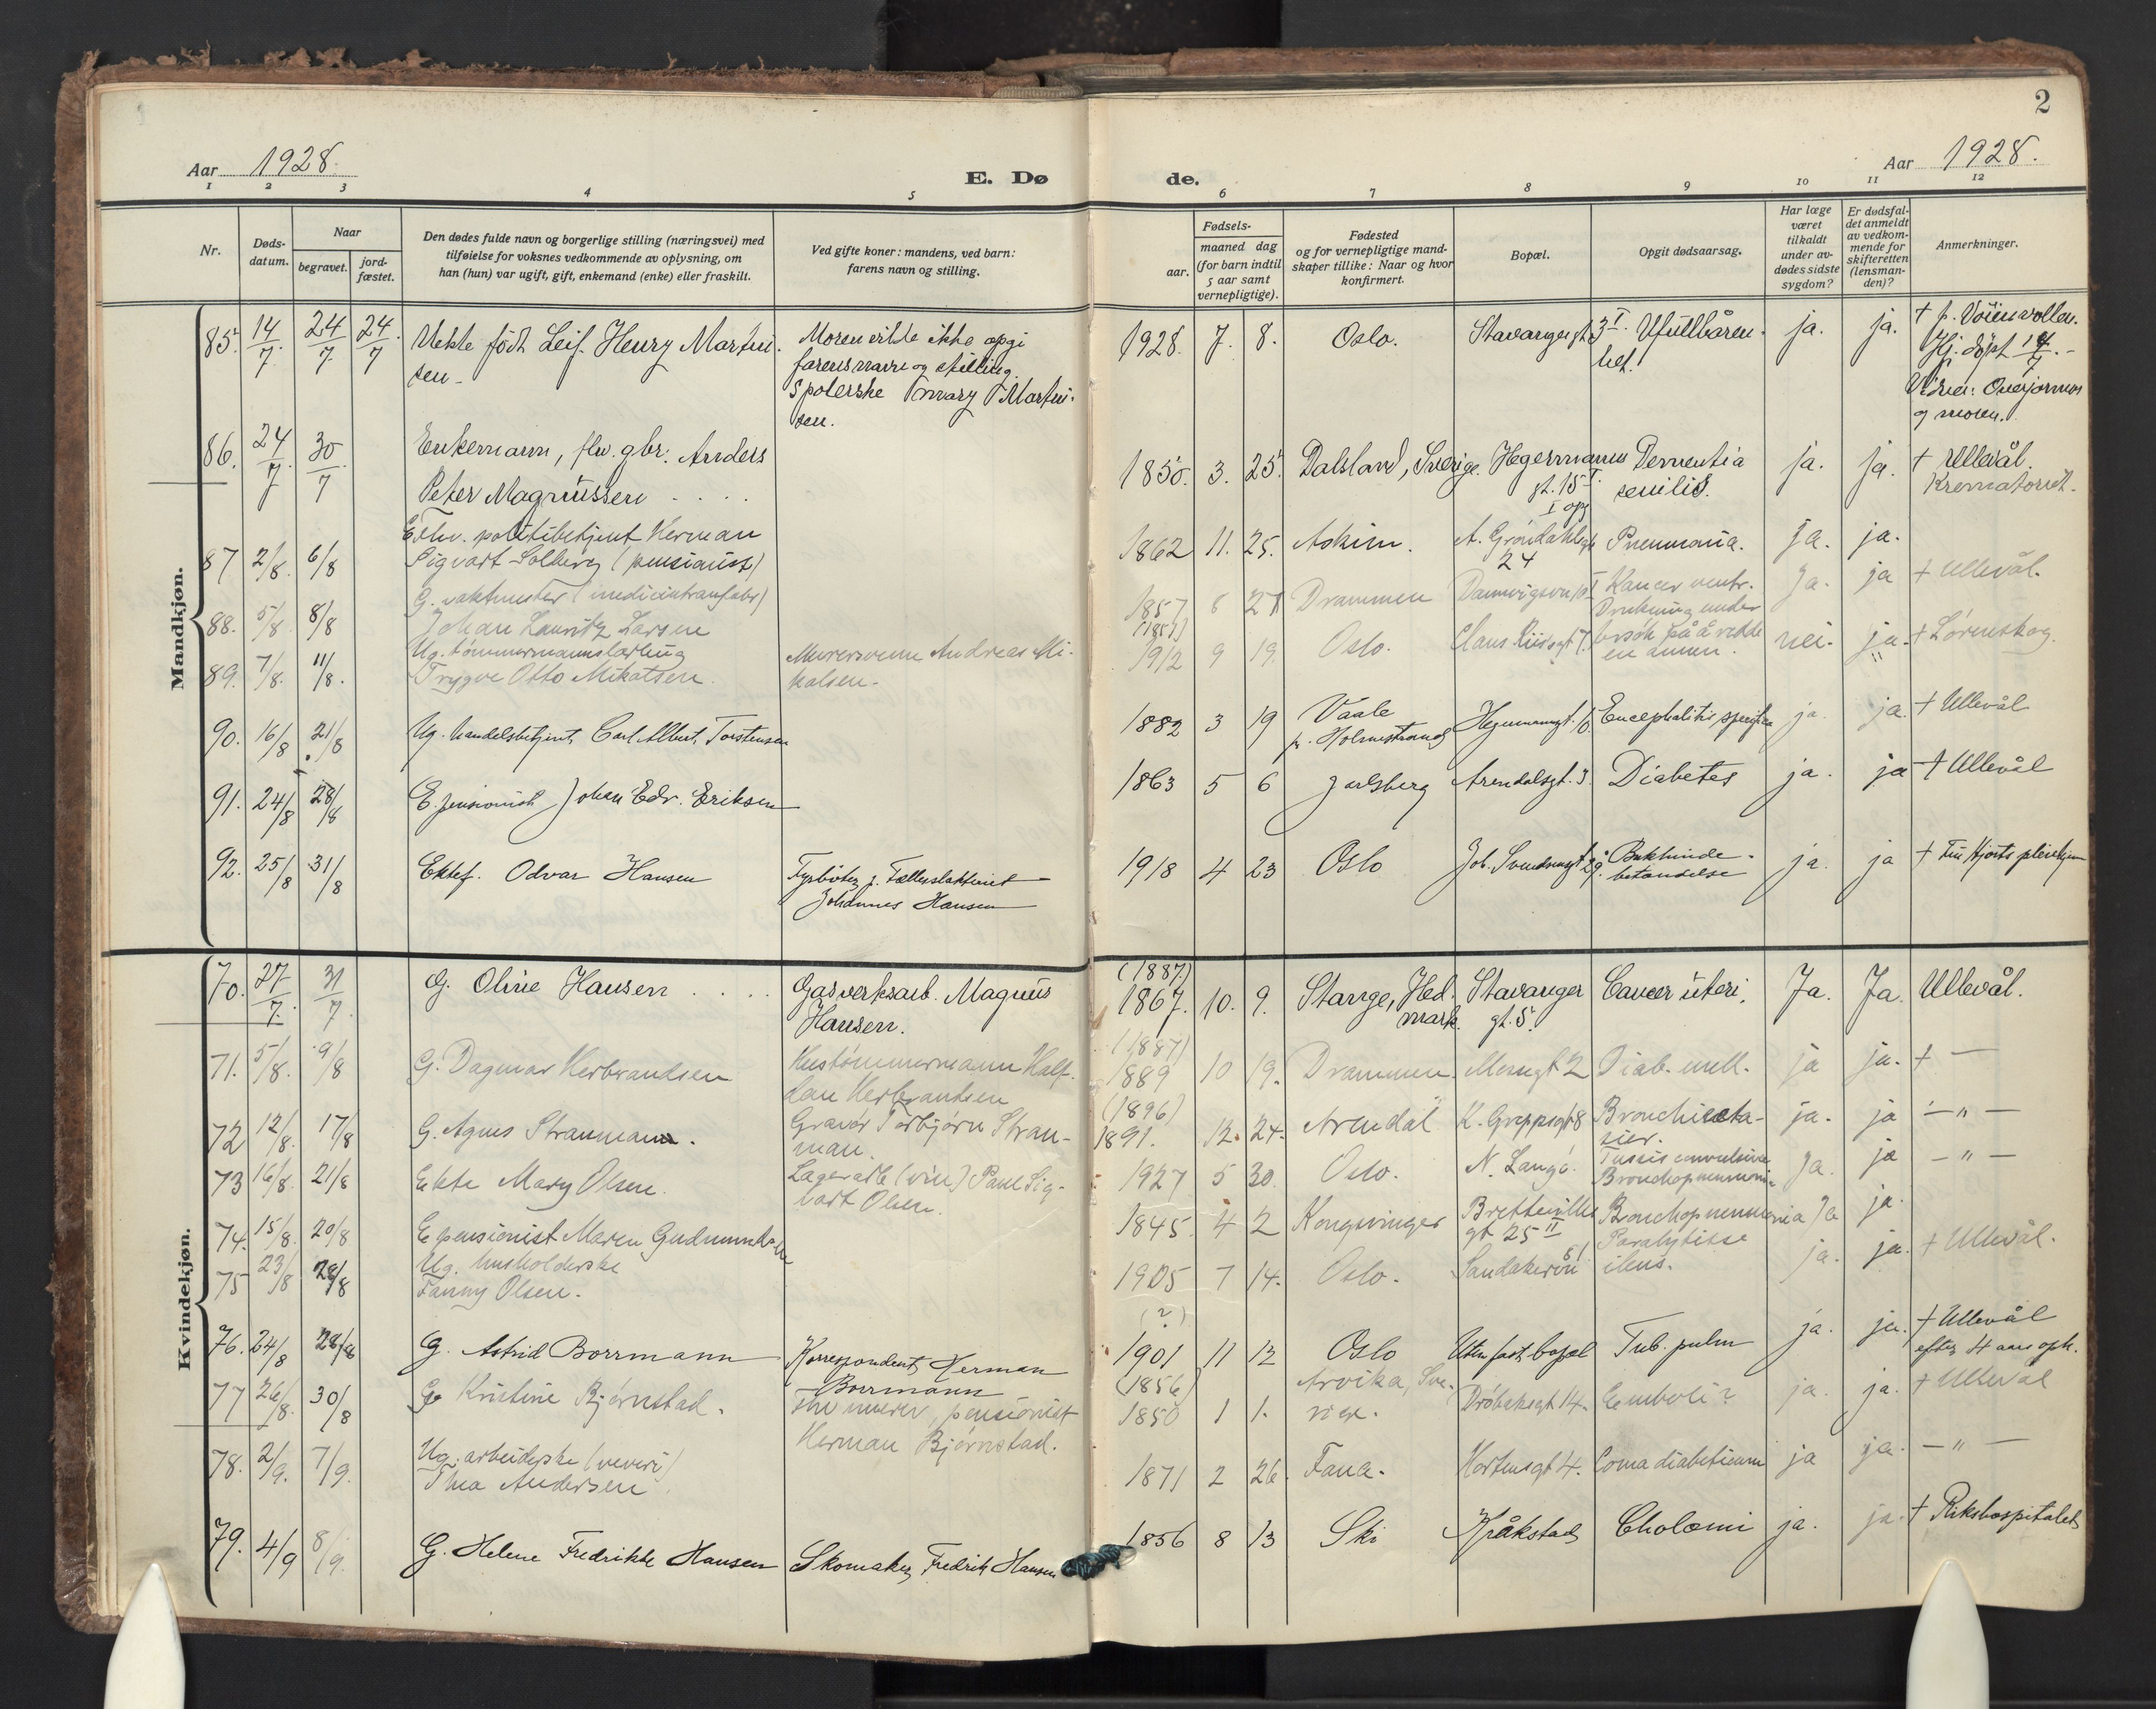 2
Aar 1928.
E. Dø
de.
Aar 1928.
1 2 3 4 5 6 7 8 9 10 11 12
Nr.
Døds-
datum.
Naar
begravet.
jord-
fæstet.
Den dødes fulde navn og borgerlige stilling (næringsvei) med
tilføielse for voksnes vedkommende av oplysning, om
han (hun) var ugift, gift, enkemand (enke) eller fraskilt.
Ved gifte koner: mandens, ved barn:
farens navn og stilling.
Fødsels-
aar.
maaned dag
(for barn indtil
5 aar samt
vernepligtige).
Fødested
og for vernepligtige mand-
skaper tillike: Naar og hvor
konfirmert.
Bopæl.
Opgit dødsaarsag.
Har læge
været
tilkaldt
under av-
dødes sidste
sygdom?
Er dødsfal-
det anmeldt
av vedkom-
mende for
skifteretten
(lensman-
den)?
Anmerkninger.
Mandkjøn.
85. 14/7. 24/7 24/7 Uekte født Leif Henry Martin-
sen
Moren vilde ikke opgi
farens navn og stilling.
Martin-
sen.
1928. 7. 8. Oslo. Stavangergt 3 I. Ufullbåren-
het. ja. ja. † p. Voienvollen.
Hj. døpt
og moren.
86. 24/7. 30/7 Enkemann, flv. gbr. Anders
Peter Magnussen . . . .
1850. 3. 25. Dalsland, Sverige. Hegermanns
gt. 15 I.
I opg
Dementia
senilis. ja. ja. † Ullevål.
Krematoriet.
87 2/8. 6/8 E. fhv. politibetjent Herman
Sigvart Solberg (pensionist)
1862 11. 25. Askim. A. Grøndahlsgt
24 Pneumonia. ja. ja.
88. 5/8 8/8 G. vaktmester (
Johan Lauritz Larsen
1857 6 27 Drammen Kancer ventr. Ja. ja † Ullevål.
89. 7/8. 11/8. Ug. tømmermannslærling
Trygve Otto Mikalsen.
Murersvenn Andreas Mi-
kalsen.
1912 9 19. Oslo. Claus Riisgt 7. Drukning under
forsøk på å redde
en annen. nei. ja. † Lørenskog.
90. 16/8 21/8 Ug. handelsbetjent Carl Albert Torstensen
1882 3 19 Våale
p. Holmestrand Hegermannsgt. 10. Encephalitis specifica ja. ja. † Ullevål
91. 24/8 28/8 E. pensionist Johan Edv. Eriksen
1863 5 6 Jarlsberg Arendalsgt. 3. Diabetes ja. ja † Ullevål
92. 25/8 31/8 Ektef. Odvar Hansen
Fyrbøter p. Fellesslakteriet
Johannes Hansen
1918 4 23 Oslo Joh. Svendsensgt 29. Bukhinde-
betændelse ja. ja †
Kvindekjøn.
70. 27/7. 31/7. G. Oline Hansen . . . .
Gasverksarb. Magnus
Hansen.
(1887)
1867. 10. 9. Stange, Hed-
mark. Stavanger
gt. 5. Cancer uteri. Ja. Ja. Ullevål.
71. 5/8. 9/8 G. Dagmar Herbrandsen
Hustømmermann Half-
dan Herbrandsen
(1887)
1889 10 19. Drammen. Mosseqt 2 Diab. mell. ja ja. † —
72 12/8. 17/8 G. Agnes Straumann.
Gravør Torbjørn Strau-
man.
(1896)
1891. 12. 24. Arendal K. Greppsgt 8 Bronchiecta-
sier. ja. ja — " —
73 16/8. 21/8 Ekte Mary Olsen.
Lagerarb (vin) Paul Sig-
vart Olsen.
1927 5 30. Oslo. N. Langø. Tussis convulsiva
Bronchopneumonia Ja. ja — " —
74. 15/8. 20/8 E. pensionist Maren
1845. 4 2 Kongsvinger Bretteville
gt 25 II Bronchopneumonia Ja ja.
75 23/8 28/8 Ug. husholderske
Fanny Olsen.
1905 7 14. Oslo. Sandakervn 61 Paralytisse
ileus. ja. ja. † Ullevål.
76. 24/8 28/8 G. Astrid Borrmann
Korrespondent Herman
Borrmann
(?)
1901 11 12 Oslo Uten fast bopæl Tub. pulm ja. ja. † Ullevål
efter 4 aars oph.
77 26/8. 30/8 G. Kristine Bjørnstad.
Fhv murer, pensionist
Herman Bjørnstad.
(1856)
1850 1 1. Arvika, Sve-
rige. Drøbaksgt 14. Emboli? ja. ja. † Ullevål
78. 2/9. 7/9. Ug. arbeiderske (veveri)
Thea Andersen.
1871 2 26. Fana. Hortensgt 4. Coma diabeticum ja ja. — " —
79. 4/9 8/9. G. Helene Fredrikke Hansen Skomaker Fredrik Hansen
1856 8 13 Ski Kråkstad Cholæmi ja. ja. † Rikshospitalet